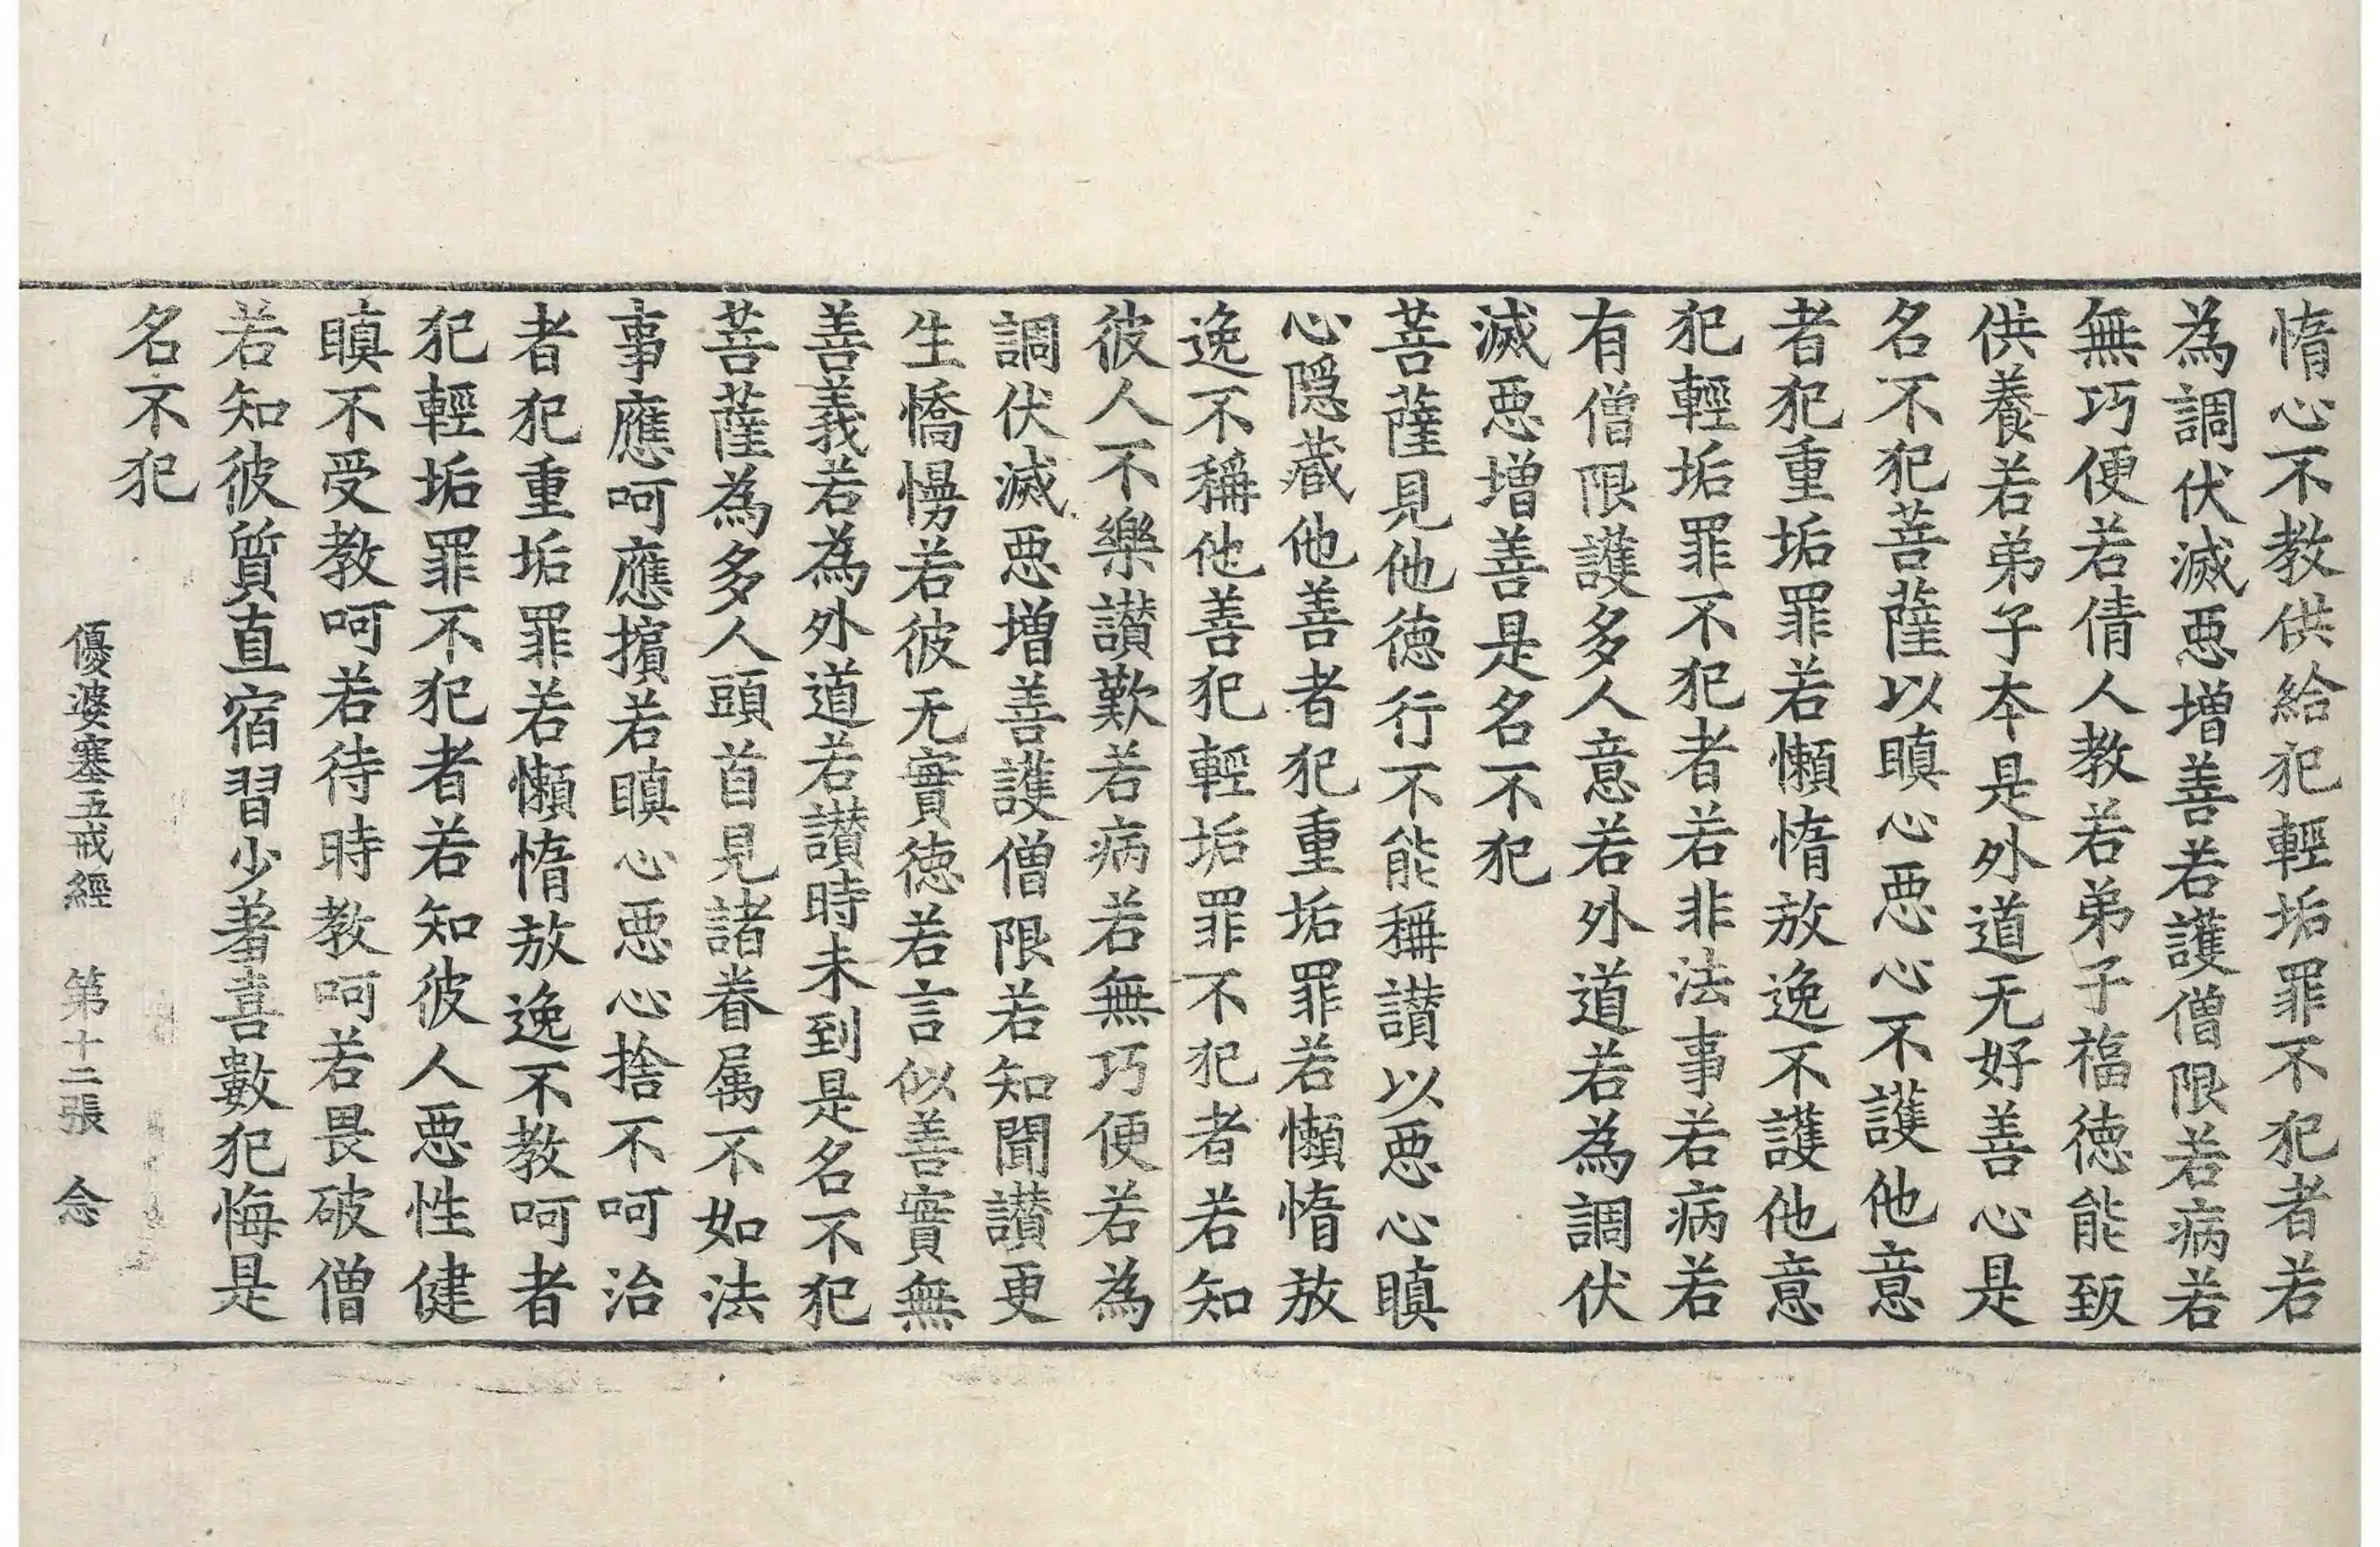 惰心不教供給犯輕垢罪不犯者若
為調伏滅惡增善若護僧限若病若
無巧便若倩人教若弟子福德能致
供養若弟子本是外道无好善心是
名不犯菩薩以瞋心惡心不護他意
者犯重垢罪若懶惰放逸不護他意
犯輕垢罪不犯者若非法事若病若
有僧限護多人意若外道若為調伏
滅惡增善是名不犯
菩薩見他德行不能稱讃以惡心瞋
心隱藏他善者犯重垢罪若懶惰放
逸不稱他善犯輕垢罪不犯者若知
彼人不樂讃歎若病若無巧便若為
調伏滅惡增善護僧限若知聞讃更
生憍慢若彼无實德若言似善實無
善義若為外道若讃時未到是名不犯
菩薩為多人頭首見諸眷属不如法
事應呵應擯若瞋心惡心捨不呵治
者犯重垢罪若懶惰放逸不教呵者
犯輕垢罪不犯者若知彼人惡性健
瞋不受教呵若待時教呵若畏破僧
若知彼質直宿習少著喜數犯悔是
名不犯
優婆塞五戒經　第十二張　念